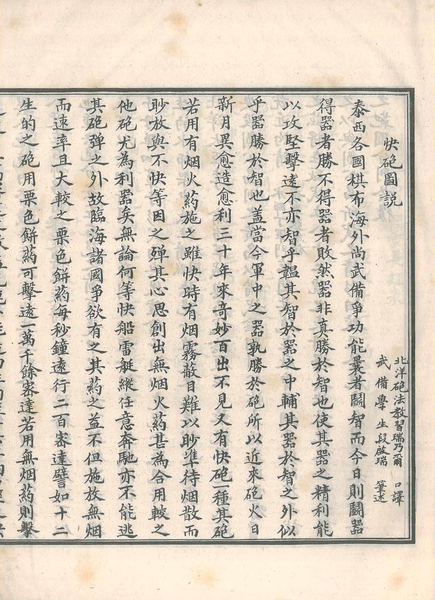 快砲圖說
北洋砲法教習瑞乃爾 口譯
武備學生段啟瑞 筆述
泰西各國棋布海外尚武備爭功能曩者鬪智而今日則鬪器
得器者勝不得器者敗然器非真勝於智也使其器之精利能
以攻堅擊遠不亦智乎謳其智於器之中輔其器於智之外似
乎器勝於智也蓋當今軍中之器孰勝於砲所以近來砲火日
新月異愈造愈利三十年來奇妙百出不見又有快砲一種其砲
若用有烟火药施之雖快時有烟霧散目難以眇準待烟散而
眇放與不快等因之殫其心思創出無烟火药甚為合用較之
他砲尤為利器矣無論何等快船雷艇縱任意奔馳亦不能逃
其砲弹之外故臨海諸國爭欲有之其药之益不但施放無烟
而速率且大較之栗色餅药每秒鐘遠行二百宻達譬如十二
生的之砲用栗色餅药可擊遠一萬千餘宻達若用無烟药則擊